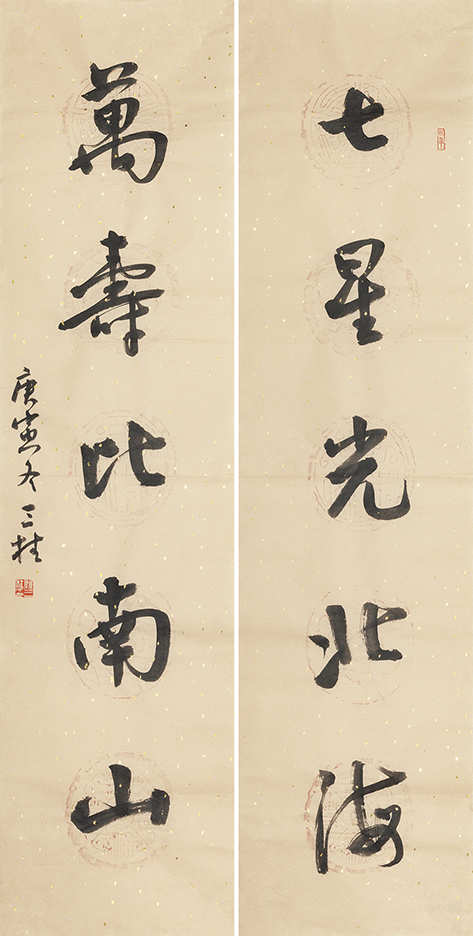 七星光北海
萬壽比南山
庚寅冬三柱